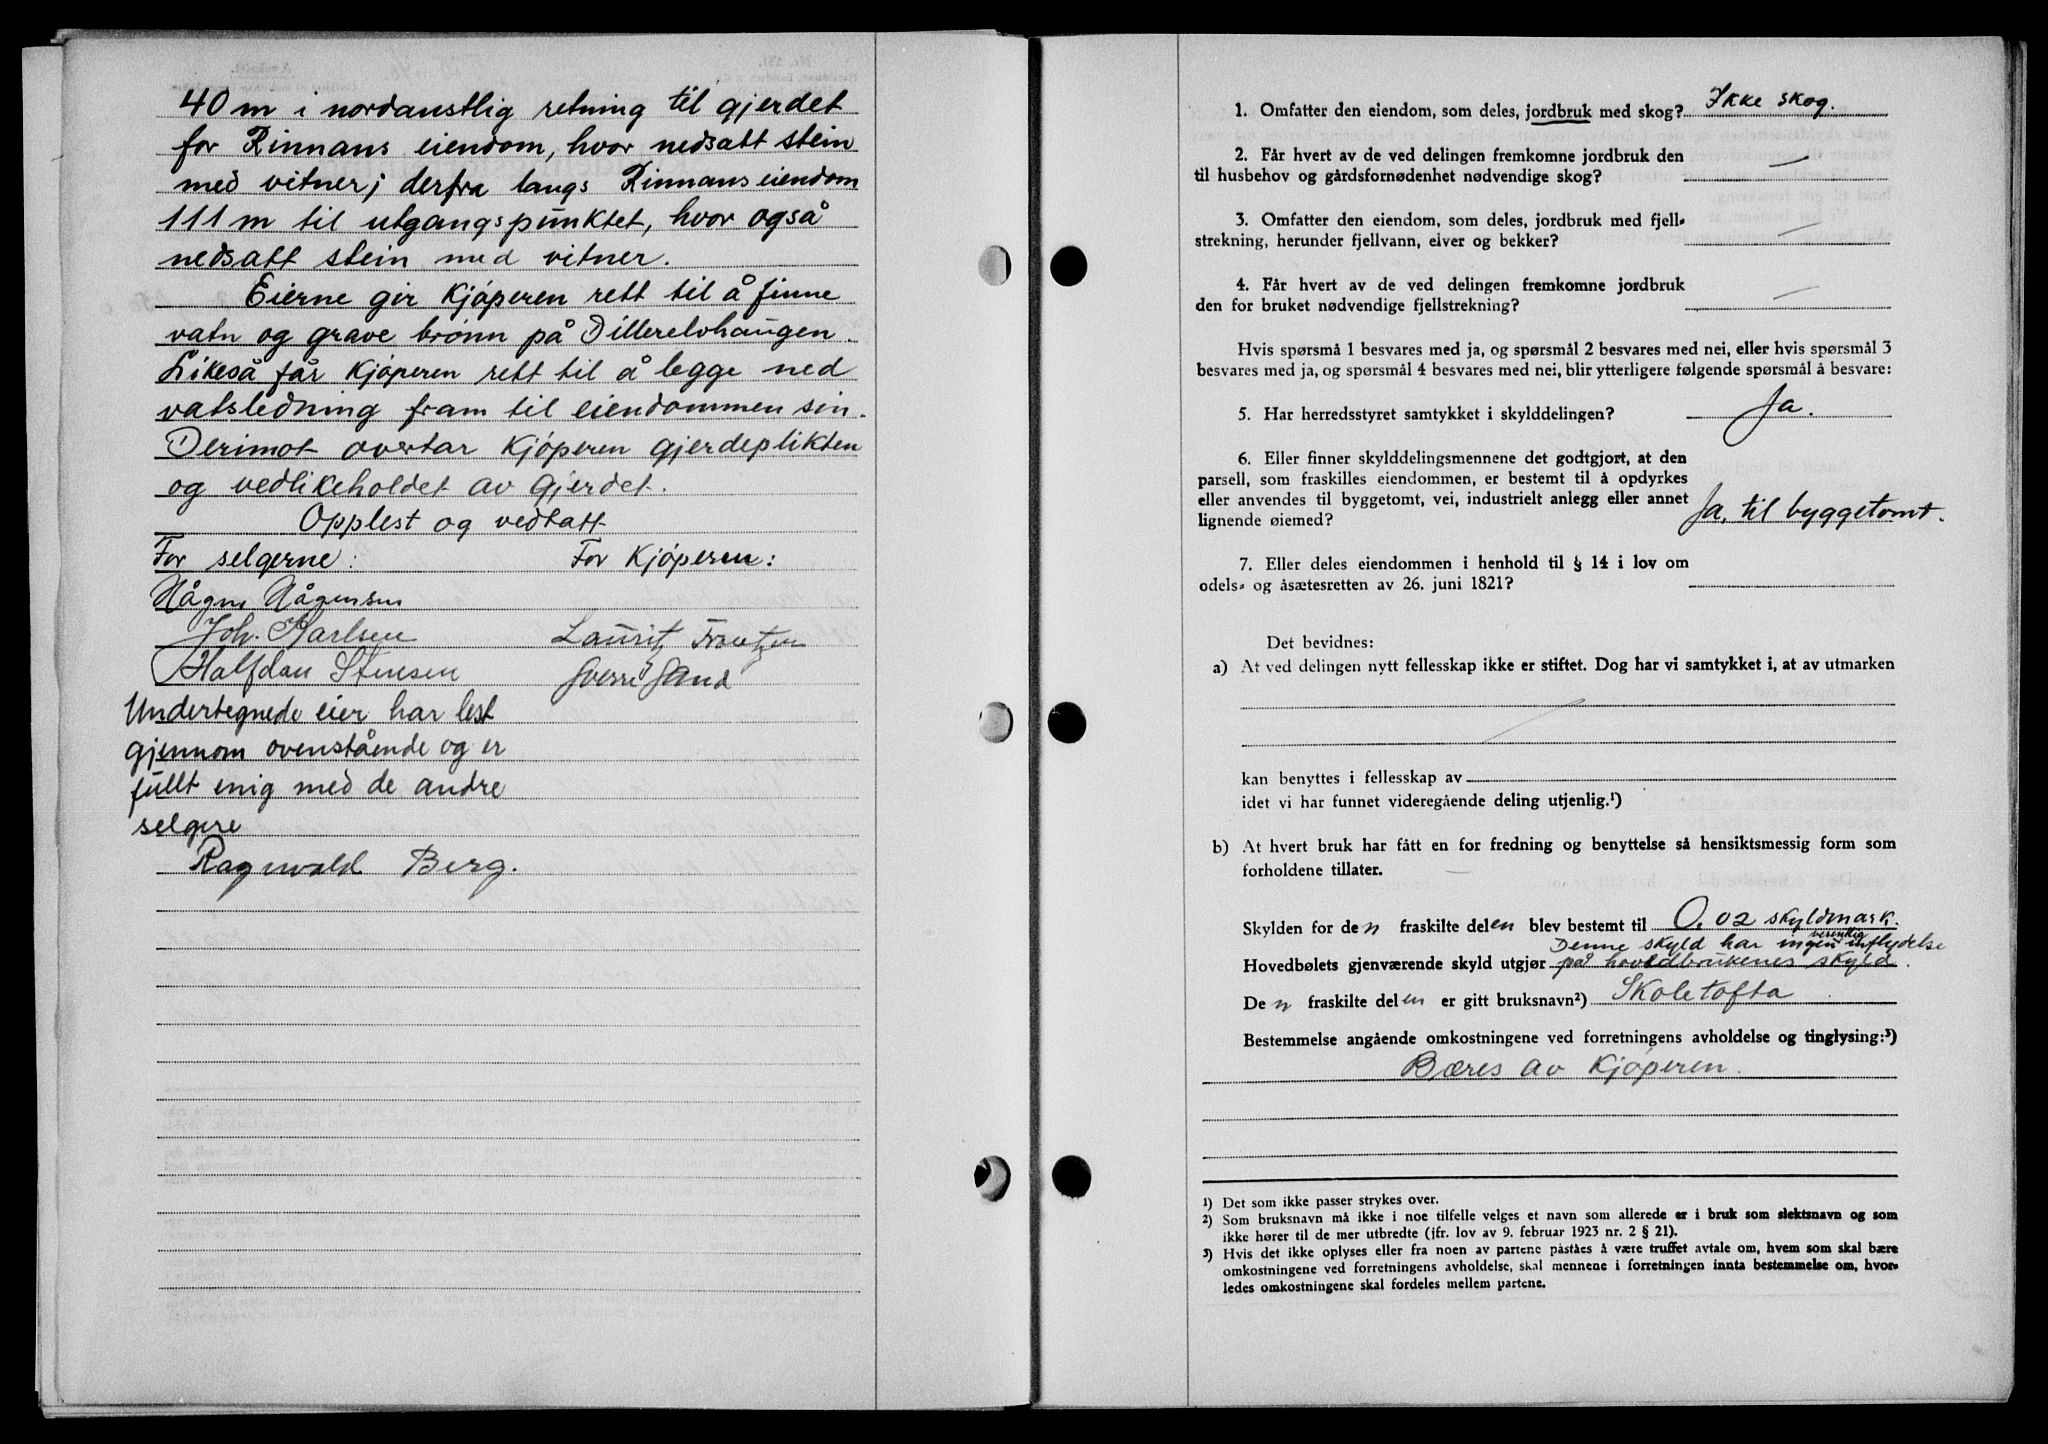 40 m i nordaustlig retning til gjerdet
for Rinnans eiendom, hvor nedsatt stein
med vitner; derfra langs Rinnans eiendom
111 m til utgangspunktet, hvor også
nedsatt stein med vitner.
Eierne gir kjøperen rett til å finne
vatn og grave brønn på Dillerelvhaugen.
Likeså får kjøperen rett til å legge ned
vatsledning fram til eiendommen sin.
Derimot overtar kjøperen gjerdeplikten
og vedlikeholdet av gjerdet.
Opplest og vedtatt
For selgerne: For kjøperen:
Hågen Hågensen
Joh. Karlsen Laurit Frantzen
Halfdan Stensen Sverre Sand
Undertegnede eier har lest
gjennom ovenstående og er
fullt enig med de andre
selgere
Ragnvald Berg.
1. Omfatter den eiendom, som deles, jordbruk med skog? Ikke skog.
2. Får hvert av de ved delingen fremkomne jordbruk den
til husbehov og gårdsfornødenhet nødvendige skog? —
3. Omfatter den eiendom, som deles, jordbruk med fjell-
strekning, herunder fjellvann, elver og bekker? —
4. Får hvert av de ved delingen fremkomne jordbruk
den for bruket nødvendige fjellstrekning? —
Hvis spørsmå 1 besvares med ja, og spørsmål 2 besvares med nei, eller hvis spørsmål 3
besvares med ja, og spørsmål 4 besvares med nei, blir ytterligere følgende spørsmål å besvare:
5. Har herredsstyret samtykket i skylddelingen? Ja.
6. Eller finner skylddelingsmennene det godtgjort, at den
parsell, som fraskilles eiendommen, er bestemt til å opdyrkes
eller anvendes til byggetomt, vei, industrielt anlegg eller annet
lignende øiemed? Ja, til byggetomt.
7. Eller deles eiendommen i henhold til § 14 i lov om
odels- og åsætesretten av 26. juni 1821?
Det bevidnes:
a) At ved delingen nytt fellesskap ikke er stiftet. Dog har vi samtykket i, at av utmarken
kan benyttes i fellesskap av
idet vi har funnet videregående deling utjenlig.¹)
b) At hvert bruk har fått en for fredning og benyttelse så hensiktsmessig form som
forholdene tillater.
Skylden for den fraskilte delen blev bestemt til 0.02 skyldmark.
Denne skyld har ingen vesentlig innflydelse
Hovedbølets gjenværende skyld utgjør på hovedbrukenes skyld.
Den fraskilte delen er gitt bruksnavn²) Skoletofta
Bestemmelse angående omkostningene ved forretningens avholdelse og tinglysing:³)
Bæres av kjøperen.
¹) Det som ikke passer strykes over.
²) Som bruksnavn må ikke i noe tilfelle velges et navn som allerede er i bruk som slektsnavn og som
ikke hører til de mer utbredte (jfr. lov av 9. februar 1923 nr. 2 § 21).
³) Hvis det ikke oplyses eller fra noen av partene påståes å være truffet avtale om, hvem som skal bære
omkostningene ved forretningens avholdelse, skal mennene i forretningen innta bestemmelse om, hvor-
ledes omkostningene skal fordeles mellem partene.